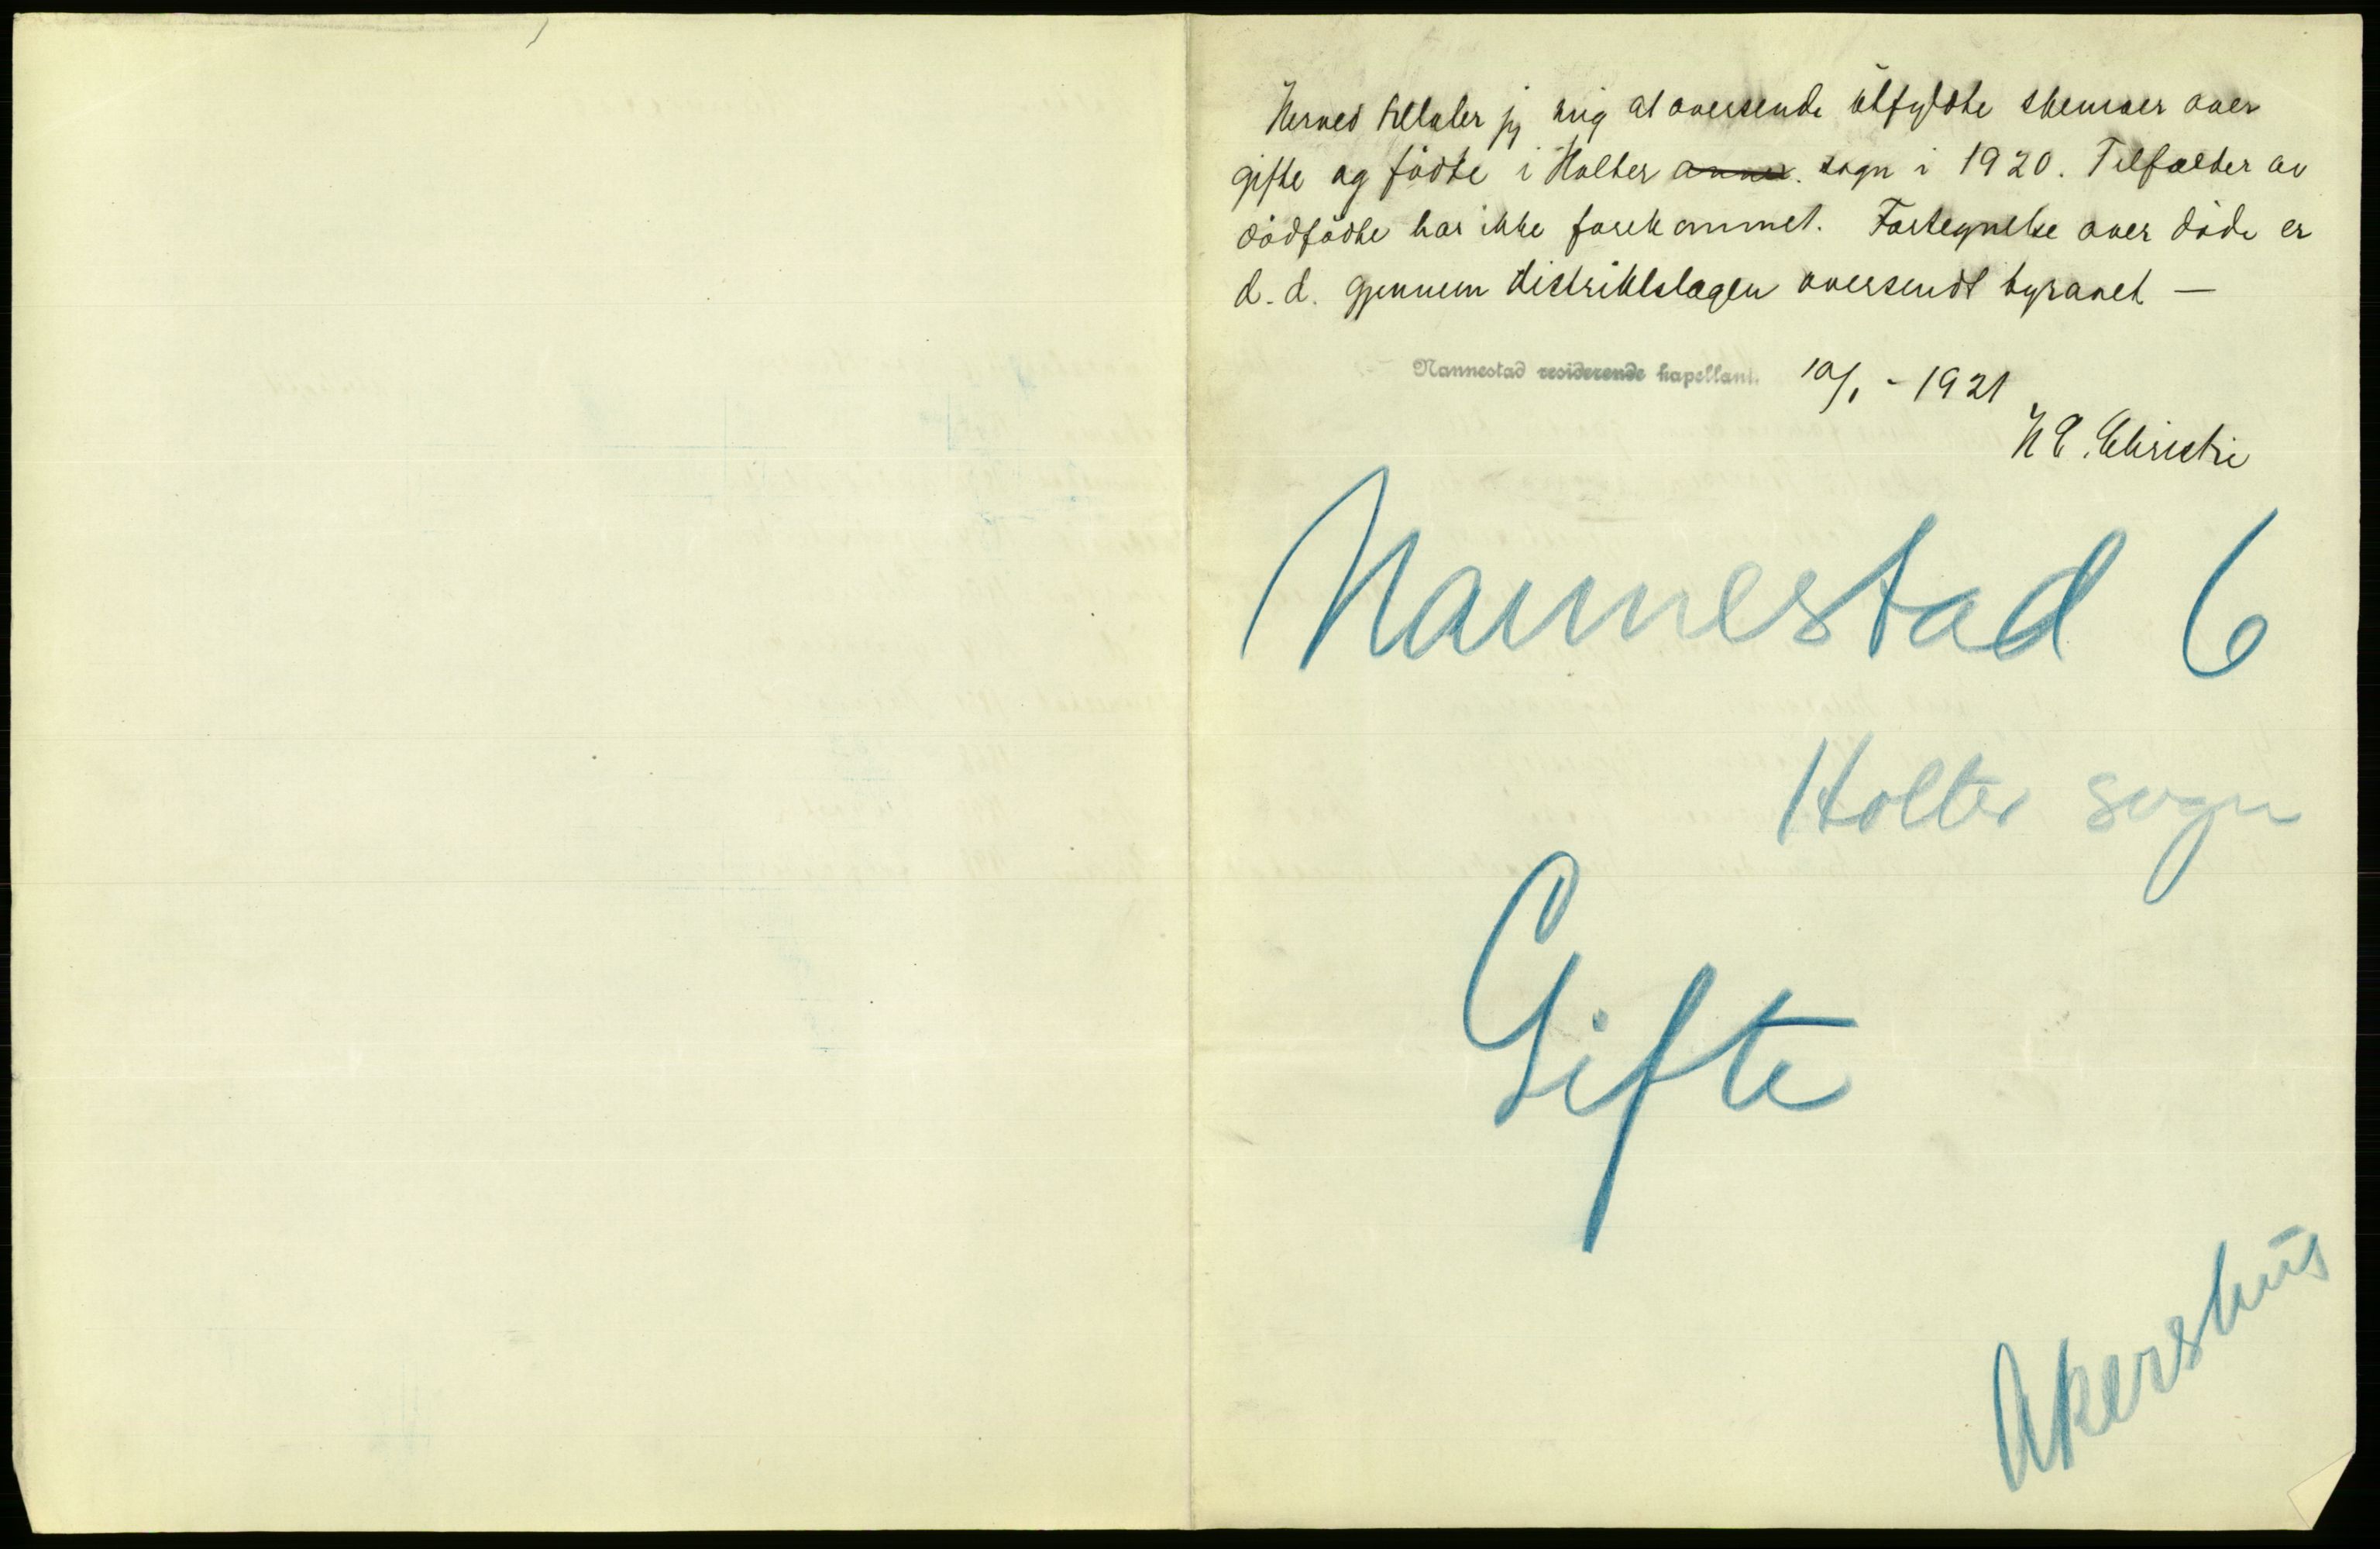 Herved tillater jeg mig at oversende utfyldte skemaer over
gifte og fødte i Holter annex. sogn i 1920. Tilfælder av
dødfødte har ikke forekommet. Fortegnelse over døde er
d. d. gjennem distriktslægen oversendt byraaet —
Nannestad residerende kapellani. 10/1 - 1921
H E. Christie
Nannestad 6
Holter sogn
Gifte
Akershus